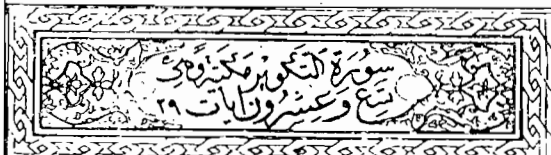 سُورَةُ التَّكْوِيرِ مَكِّيَّةٌ وَهِيَ
تِسْعٌ وَعِشْرُونَ آيَات ٢٩